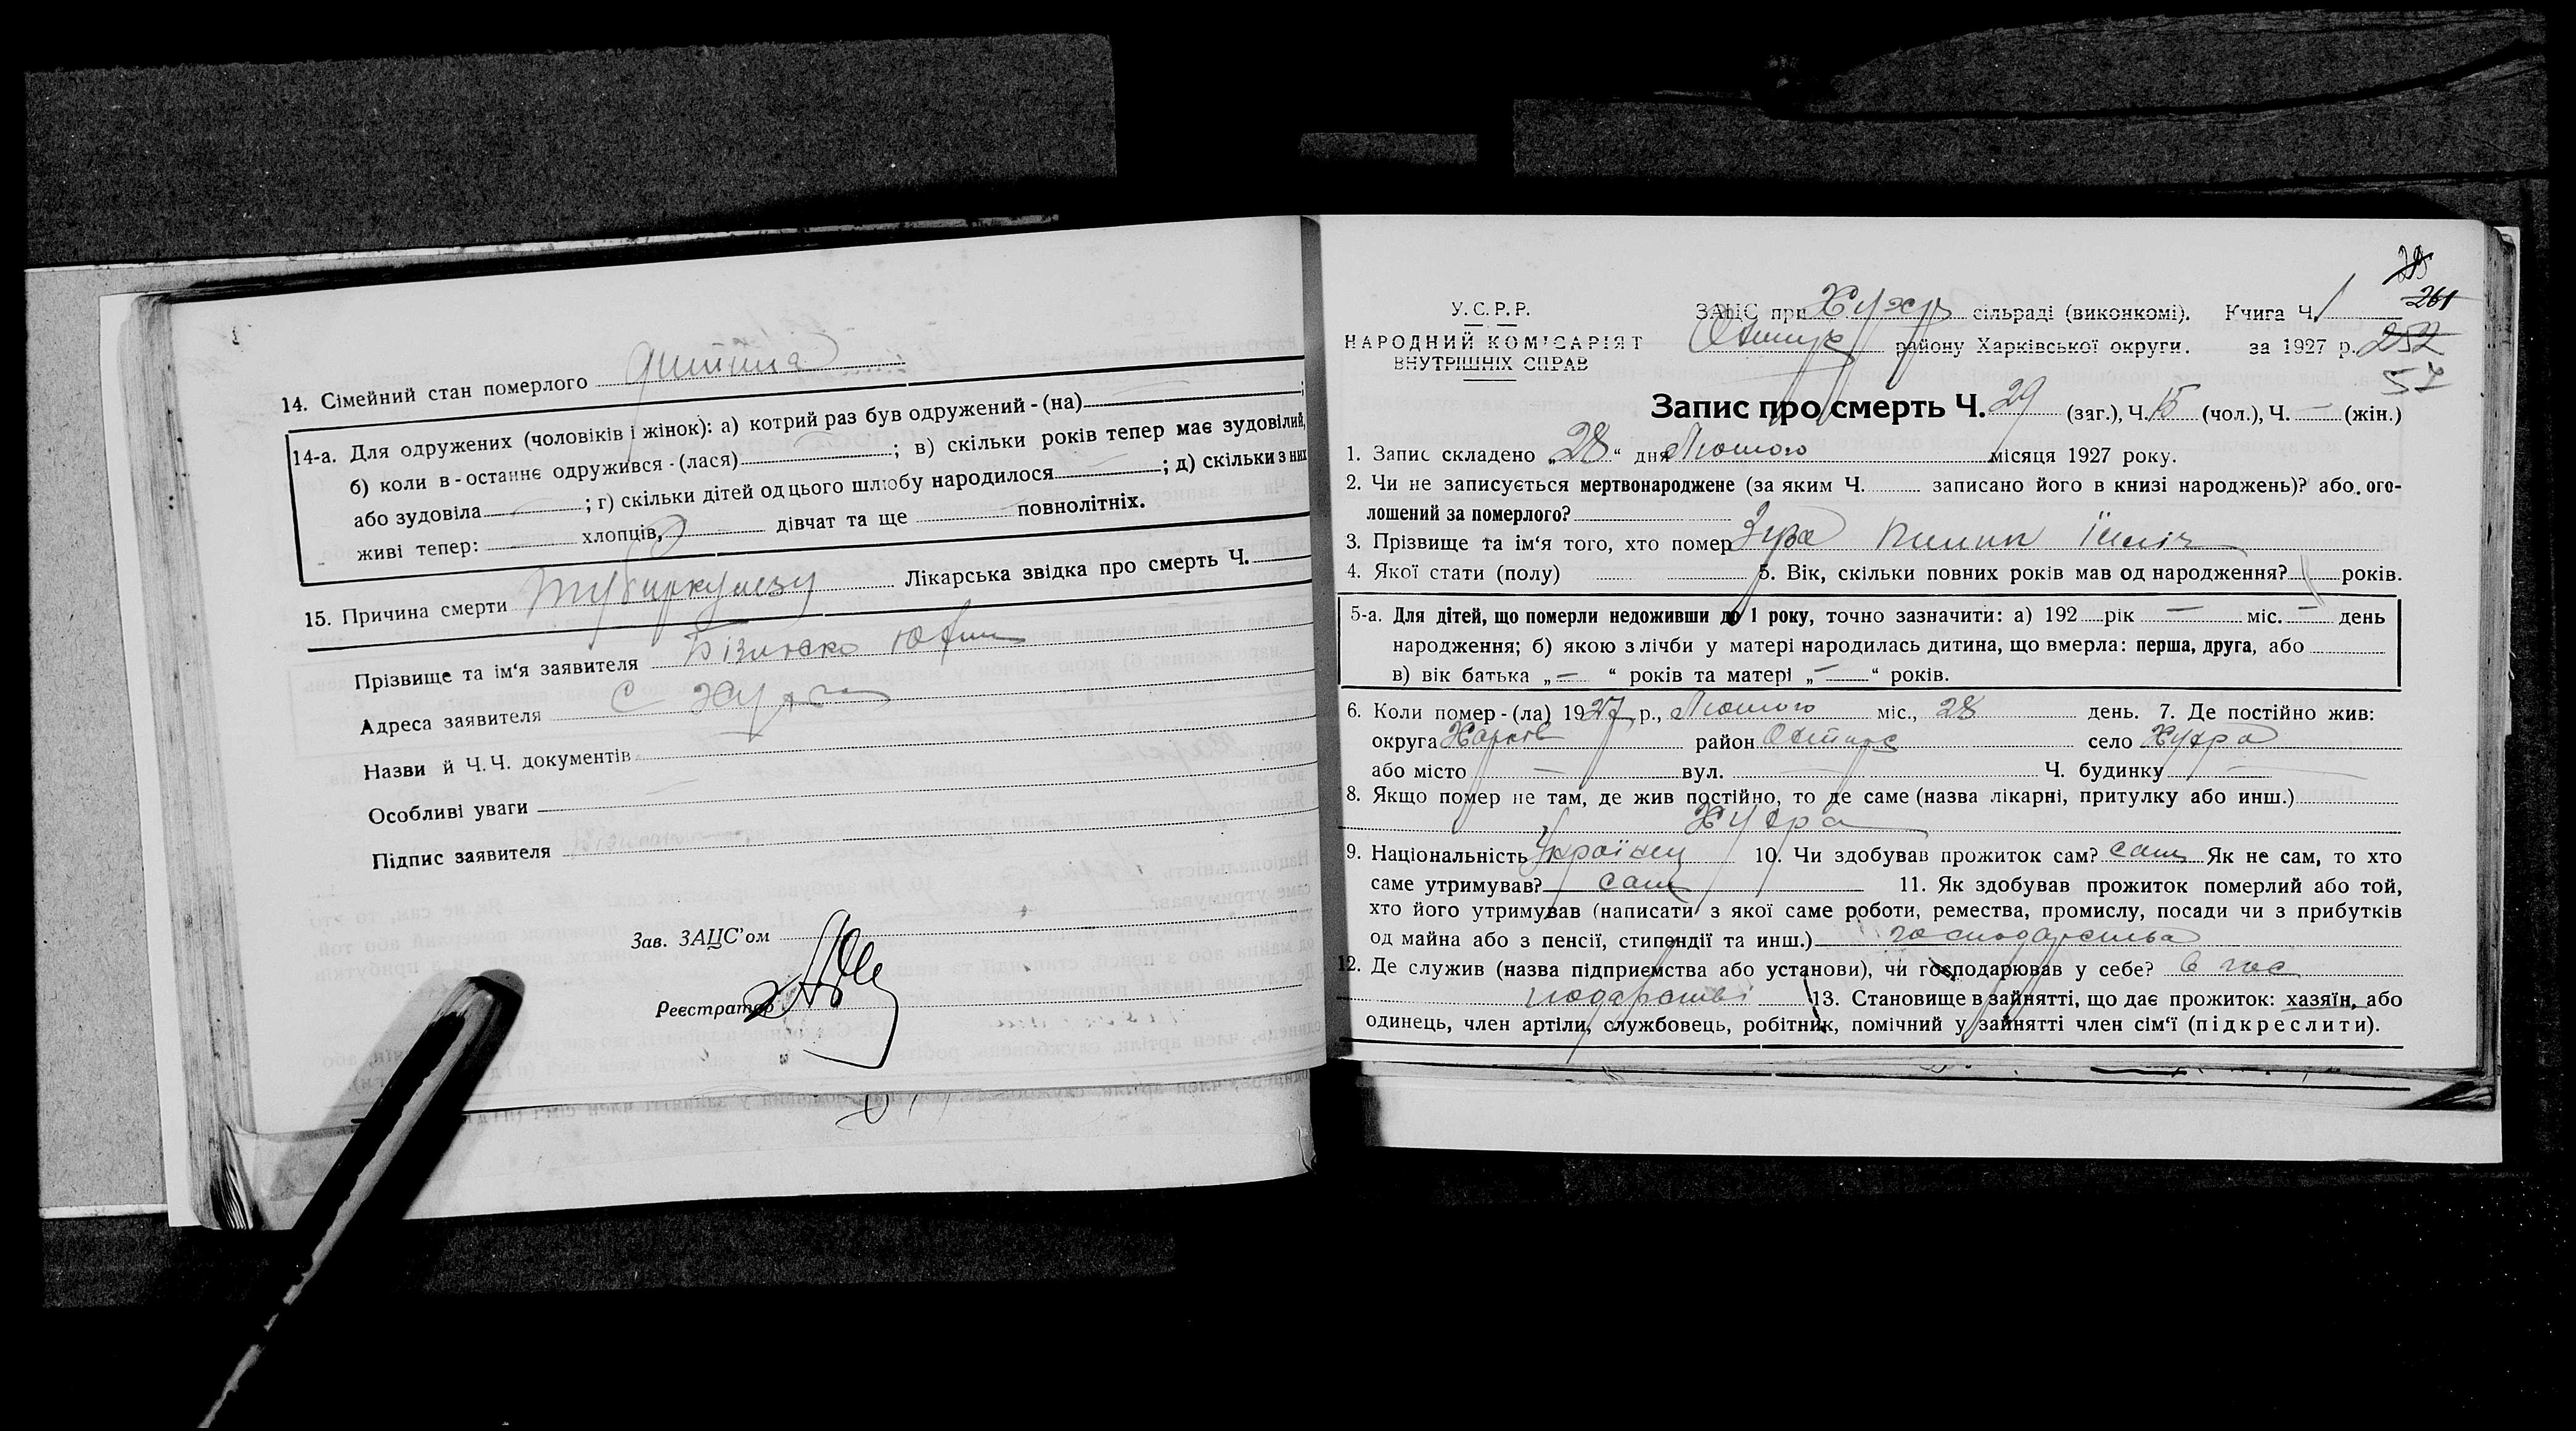 14. Сімейний стан померлого дитина
14-а. Для одружених (чоловіків і жінок): а) котрий раз був одружений - (на) ;
б) коли в-останнє одружився - (лася) ; в) скільки років тепер має зудовілий,
або зудовіла ; г) скільки дітей од цього шлюбу народилося ; д) скільки з них
живі тепер: хлопців, дівчат та ще повнолітніх.
15. Причина смерти туберкульозу Лікарська звідка про смерть Ч.
Прізвище та ім'я заявителя
Адреса заявителя с Хухра
Назви й Ч.Ч. документів
Особливі уваги
Підпис заявителя
Зав. ЗАЦС'ом
Реєстратор
28
261
252
57
У.С.Р.Р.
НАРОДНИЙ КОМІСАРІЯТ
ВНУТРІШНІХ СПРАВ
ЗАЦС при Хухр сільраді (виконкомі). Книга Ч. 1
Охтир району Харківської округи. за 1927 р.
Запис про смерть Ч. 29 (заг.), Ч. 15 (чол.), Ч. — (жін.)
1. Запис складено „28“ дня Лютого місяця 1927 року.
2. Чи не записується мертвонароджене (за яким Ч. записано його в книзі народжень)? або ого-
лошений за померлого?
3. Прізвище та ім'я того, хто помер
4. Якої стати (полу) 5. Вік, скільки повних років мав од народження? років.
5-а. Для дітей, що померли недоживши до 1 року, точно зазначити: а) 192 рік — міс. — день
народження; б) якою з лічби у матері народилась дитина, що вмерла: перша, друга, або
в) вік батька „—“ років та матері „—“ років.
6. Коли помер - (ла) 1927 р., Лютого міс., 28 день. 7. Де постійно жив:
округа Харків район Охтирс село Хухра
або місто — вул. — Ч. будинку —
8. Якщо помер не там, де жив постійно, то де саме (назва лікарні, притулку або инш.)
Хухра
9. Національність Українец 10. Чи здобував прожиток сам? сам Як не сам, то хто
саме утримував? сам 11. Як здобував прожиток померлий або той,
хто його утримував (написати з якої саме роботи, ремества, промислу, посади чи з прибутків
од майна або з пенсії, стипендії та инш.) господарства
12. Де служив (назва підприємства або установи), чи господарював у себе? в гос
подарстві 13. Становище в зайнятті, що дає прожиток: хазяїн, або
одинець, член артіли, службовець, робітник, помічний у зайнятті член сім'ї (підкреслити).